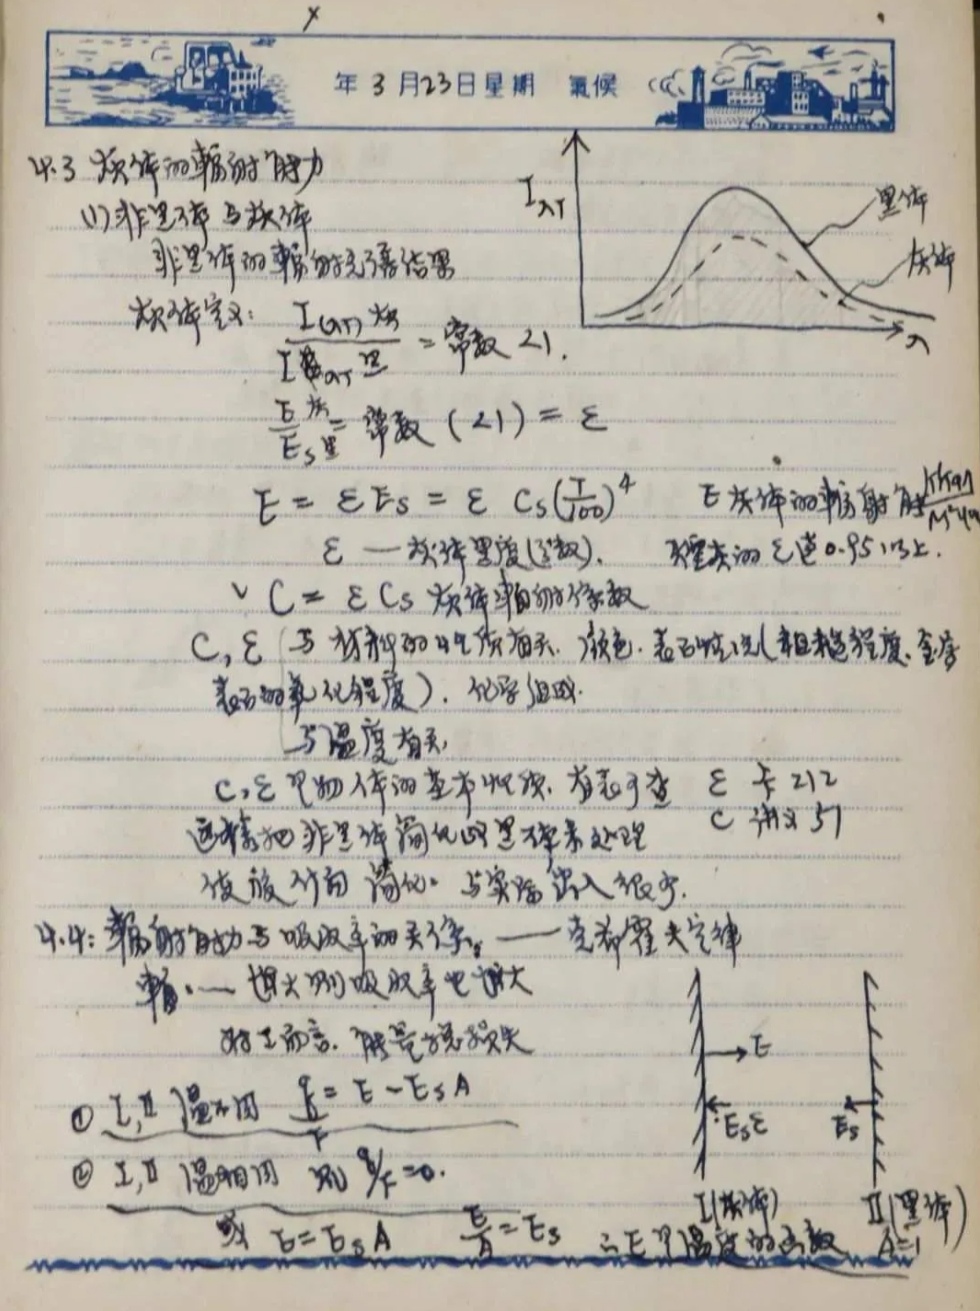 年 3 月 23 日 星期 氣候
4.3 灰体的辐射能力
(1) 非黑体与灰体
非黑体的辐射光谱结果
灰体定义: I(λT) 灰 / I λT 黑 = 常数 <1.
E灰 / Es黑 = 常数 (<1) = ε
E = εEs = ε Cs(T/100)^4 E 灰体的辐射能
ε — 灰体黑度(系数). 的 ε 达 0.95 以上.
C = εCs 灰体辐射系数
C, ε 与材料的性质有关. 颜色. 表面状况(粗糙程度. 金属
表面的氧化程度). 化学组成.
与温度有关,
C, ε 是物体的基本性质. 有表可查 ε 212
C 讲义 51
这样把非黑体简化成黑体来处理
简化. 与实际出入很少.
4.4: 辐射能力与吸收率的关系. —— 克希霍夫定律
辐. — 增大则吸收率也增大
对 I 而言. 能量损失
① I, II 温不同 q/F = E - EsA
② I, II 温相同 则 q/F = 0.
或 E = EsA E/A = Es ∴ E 是温度的函数
IλT
黑体
灰体
λ
E
Esε
Es
I(灰体)
II(黑体)
A=1